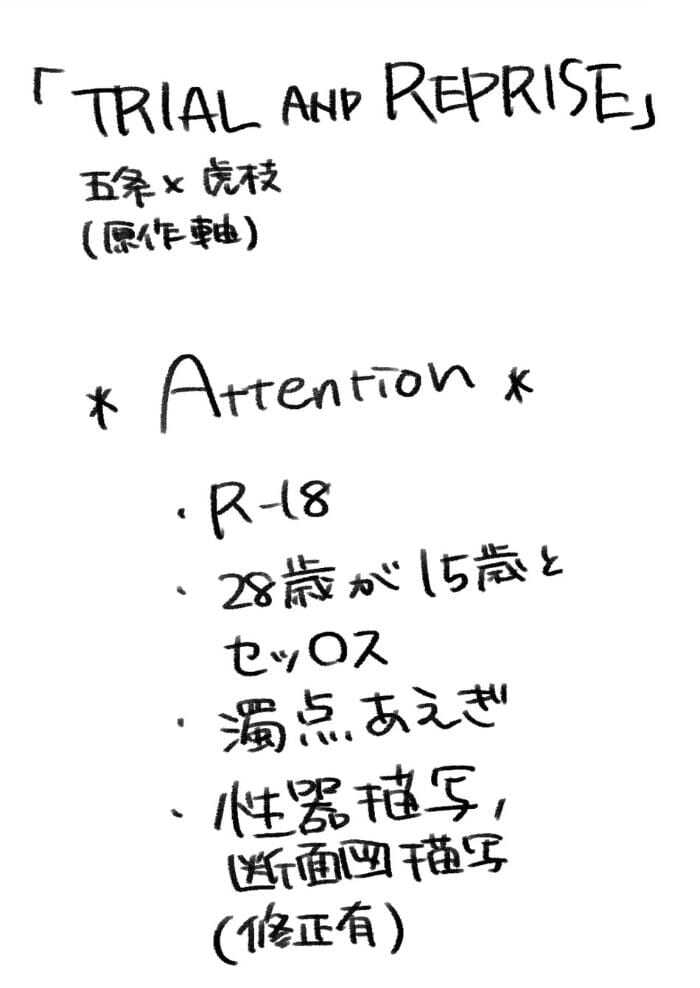 「TRIAL AND REPRISE」
五条×虎枝
(原作軸)
* Attention *
・R-18
・28歳が15歳と
セッ〇ス
・濁点あえぎ
・性器描写,
断面図描写
(修正有)